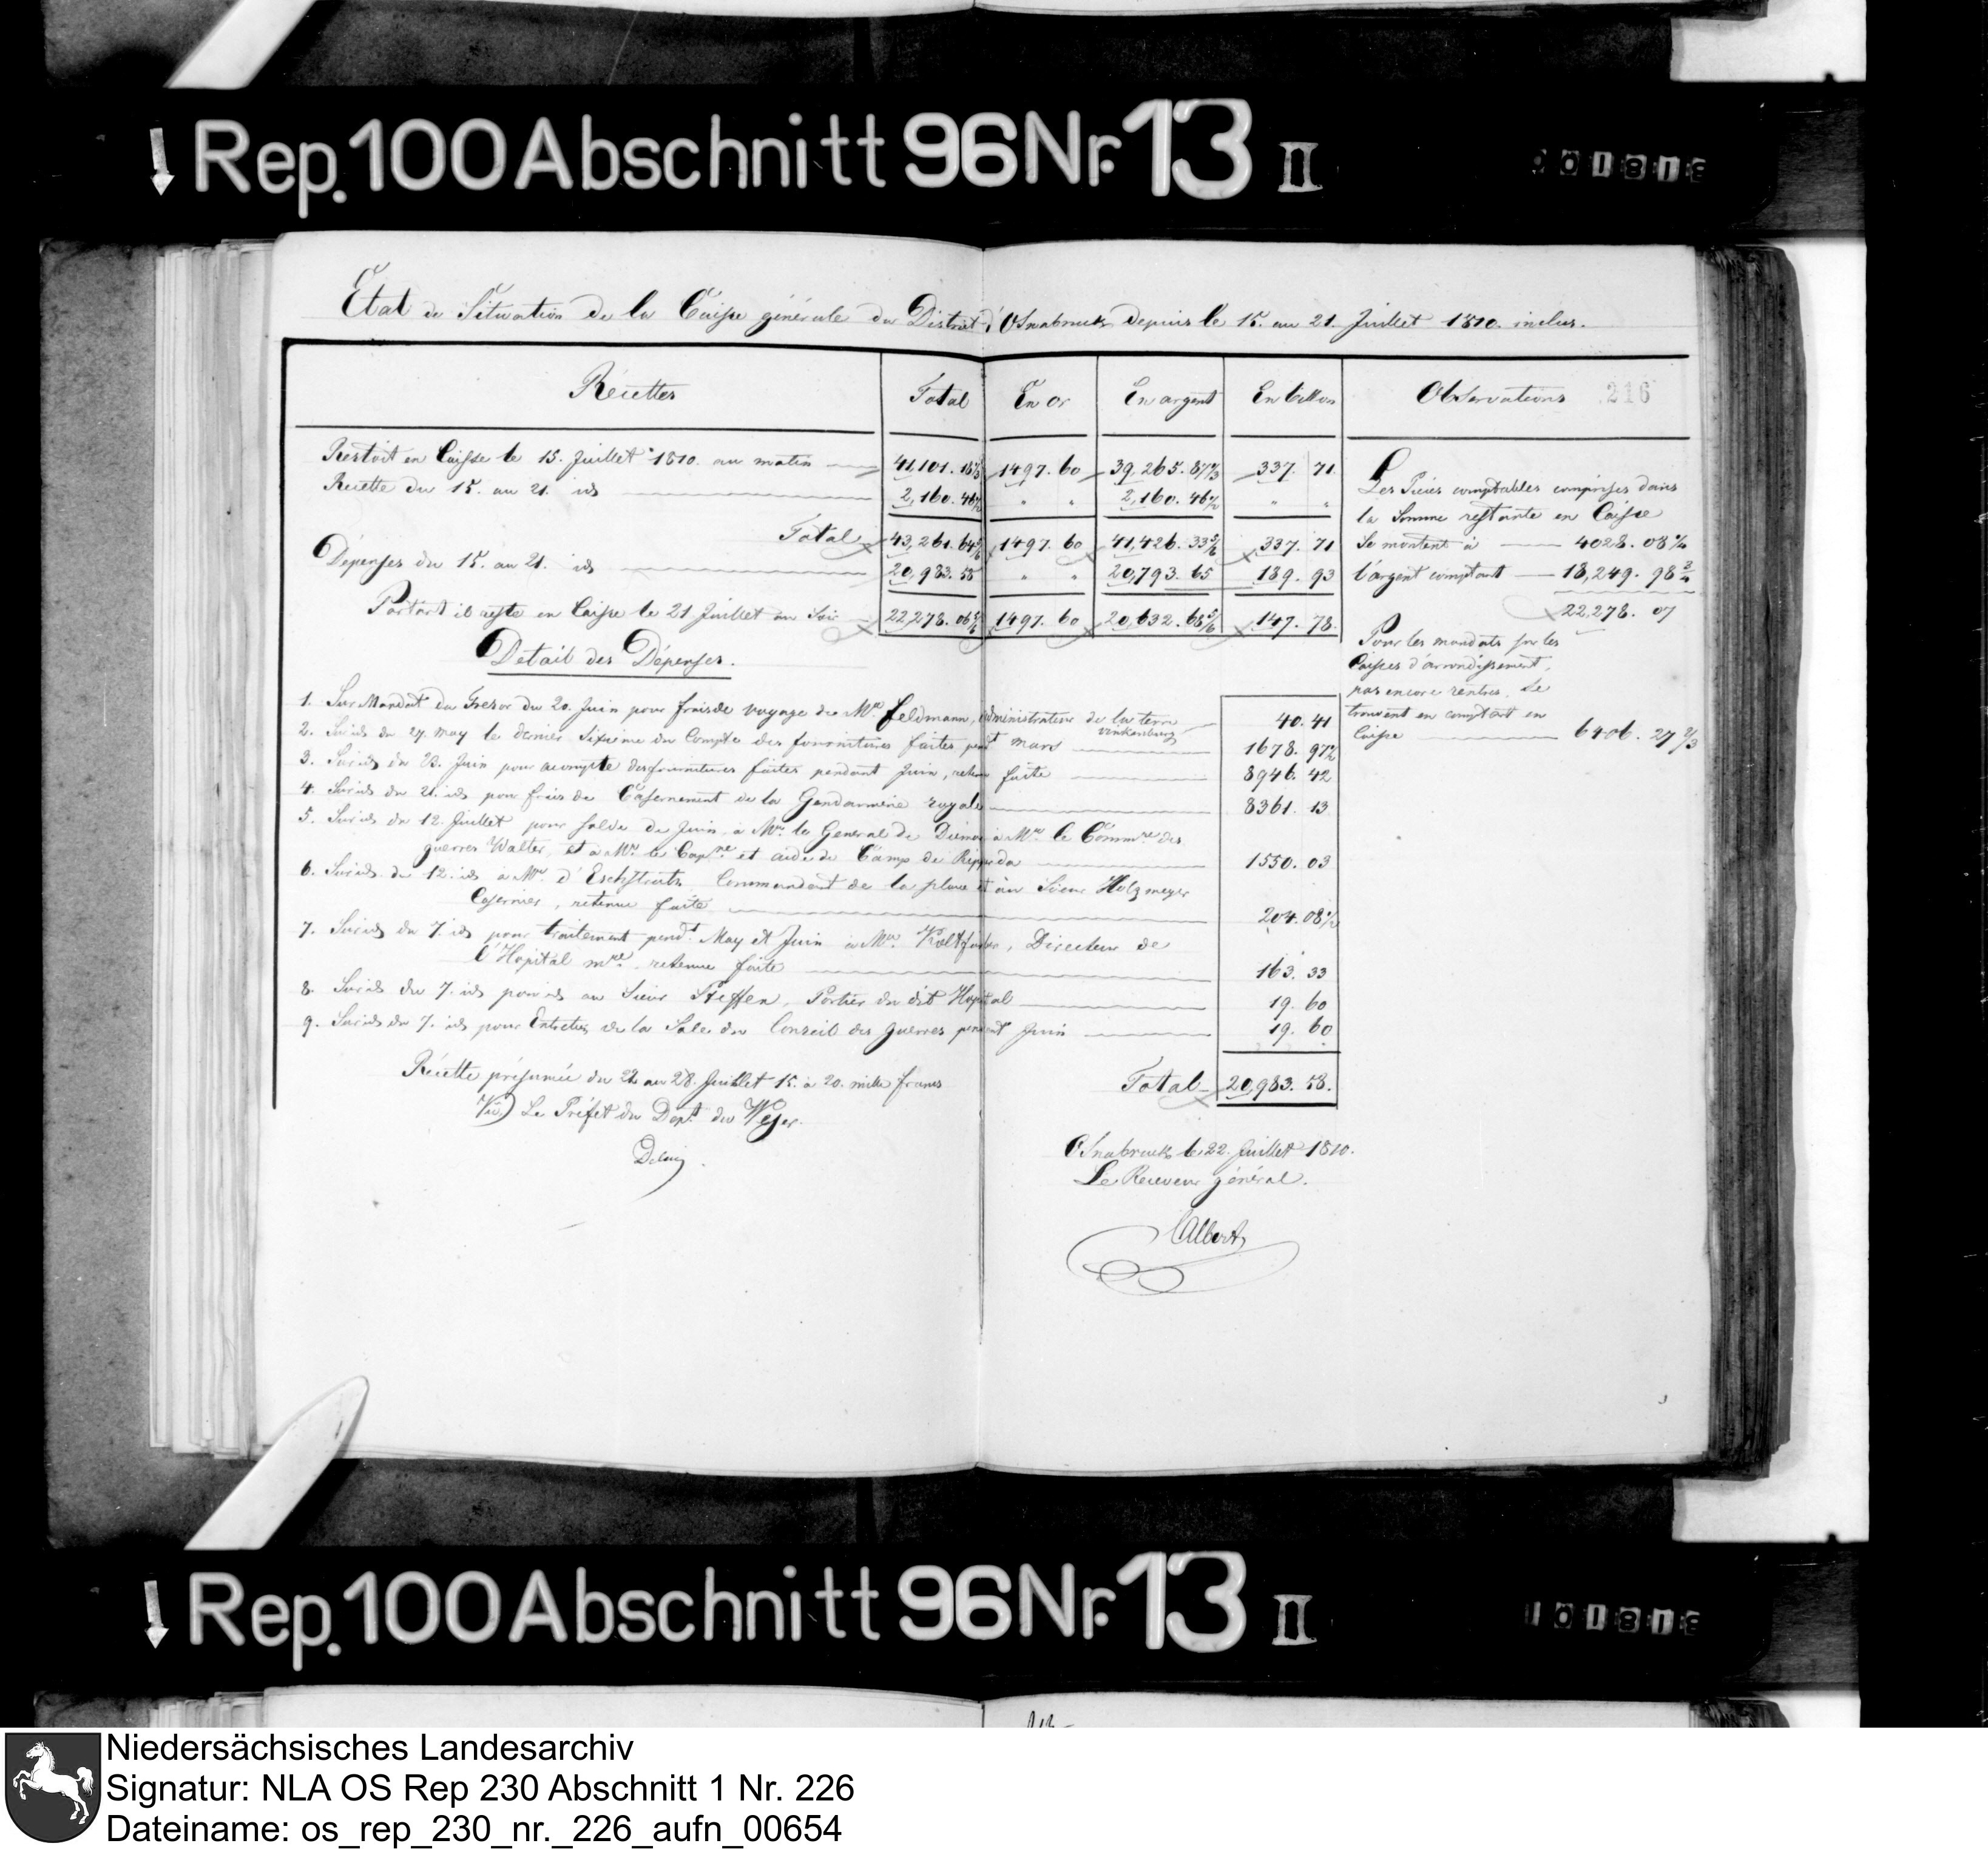 Rep. 100 Abschnitt 96 Nr. 13 II
Etat de Situation de la Caisse générale du District d'Osnabruck depuis le 15. au 21. Juillet 1810. inclus.
Récettes Total En or En argent En billon Observations 216
Restoit en Caisse le 15. Juillet 1810. au matin 41,101. 18 1497. 60 39,265. 87 337. 71
Recette du 15. au 21. ids 2,160. 46 1/2 " " 2,160. 46 1/2 " "
Total 43,261. 64 5/6 1497. 60 41,426. 33 5/6 337. 71
Dépenses du 15. au 21. ids 20,983. 58 " " 20,793. 65 189. 93
Partant il reste en Caisse le 21 Juillet au Soir 22,278. 06 5/6 1497. 60 20,632. 68 5/6 147. 78
Les Pièces comptables comprises dans
la Somme restante en Caisse
Se montent à 4028. 08 1/4
l'argent comptant 18,249. 98 3/4
22,278. 07
Pour les mandats sur les
Caisses d'arrondissement,
pas encore rentrés, se
trouvent en comptant en
Caisse 6406. 27 2/3
Detail des Dépenses.
1. Sur Mandat du Tresor du 20. Juin pour frais de voyage de Mr. Feldmann, administrateur de la terre Vinkenburg 40. 41
2. Sur ids du 27. May le dernier Sixième du Compte des fournitures faites pendt. Mars 1678. 97 1/2
3. Sur ids du 23. Juin pour acompte des fournitures faites pendant Juin, retenue faite 8946. 42
4. Sur ids du 21. ids pour frais de Casernement de la Gendarmerie royale 8361. 13
5. Sur ids du 12. Juillet pour solde de Juin à Mr. le General de à Mr. le Commre. des
guerres Walter, et à Mr. le Capne. et aide de Camp de Ripperda 1550. 03
6. Sur ids du 12. ids à Mr. d'Eschstruth Commandant de la place et au Sieur Holzmeyer
Casernier, retenue faite 204. 08 1/2
7. Sur ids du 7. ids pour traitement pendt. May et Juin à Mr. Directeur de
l'Hopital mre. retenue faite 163. 33
8. Sur ids du 7. ids pour ids au Sieur Steffen, Portier du dit Hopital 19. 60
9. Sur ids du 7. ids pour Entretien de la Sale du Conseil des guerres pendant Juin 19. 60
Total 20,983. 58.
Récette présumée du 22 au 28. Juillet 15. à 20. mille francs
Vu) Le Préfet du Dept. du Weser.
Osnabruck le 22. Juillet 1810.
Le Receveur général.
CAlbert
Rep. 100 Abschnitt 96 Nr. 13 II
Niedersächsisches Landesarchiv
Signatur: NLA OS Rep 230 Abschnitt 1 Nr. 226
Dateiname: os_rep_230_nr._226_aufn_00654